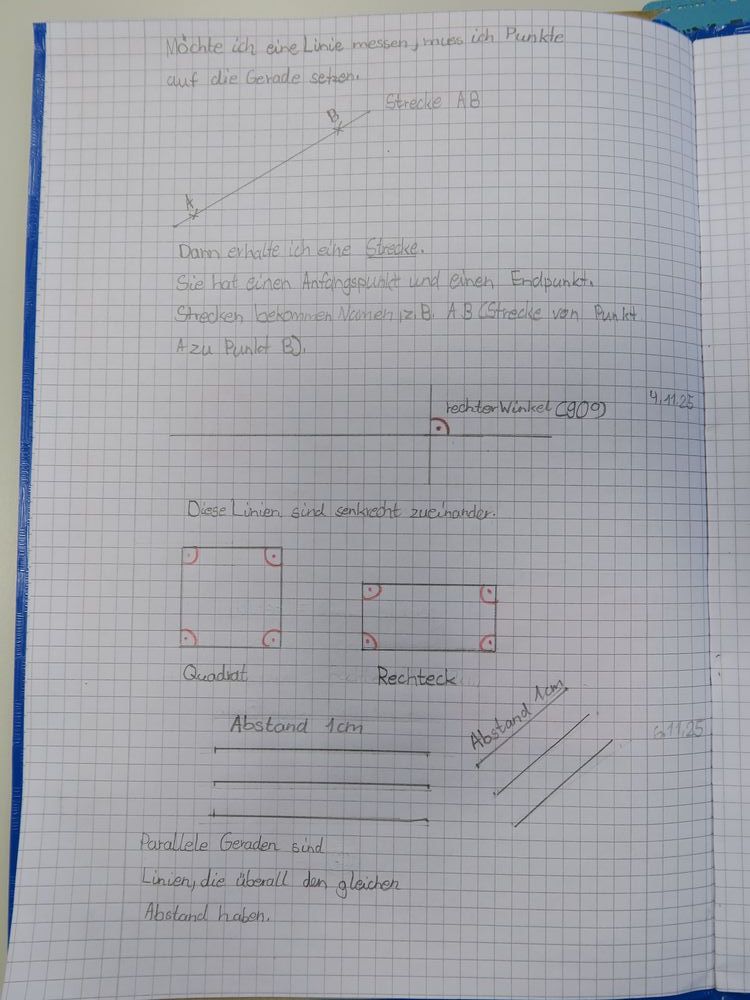 Möchte ich eine Linie messen, muss ich Punkte
auf die Gerade setzen.
Strecke AB
B
A
Dann erhalte ich eine Strecke.
Sie hat einen Anfangspunkt und einen Endpunkt.
Strecken bekommen Namen, z.B. AB (Strecke von Punkt
A zu Punkt B).
4.11.25
rechter Winkel (90°)
Diese Linien sind senkrecht zueinander.
Quadrat
Rechteck
Abstand 1cm
Abstand 1cm
6.11.25
Parallele Geraden sind
Linien, die überall den gleichen
Abstand haben.